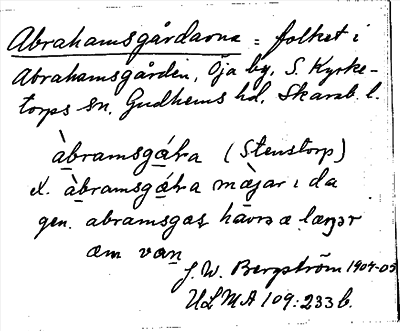 Abrahamsgårdarna = folket i
Abrahamsgården, Öja by, S. Kyrke-
torps sn, Gudhems hd, Skarab. l.
àbramsgáɫra (Stenstorp)
ex. àbramsgáɫra mæ̀jar i da
gen. abramsgas havrə æ læŋər
æm van
J. W. Bergström 1904-05
ULMA 109:233 b.